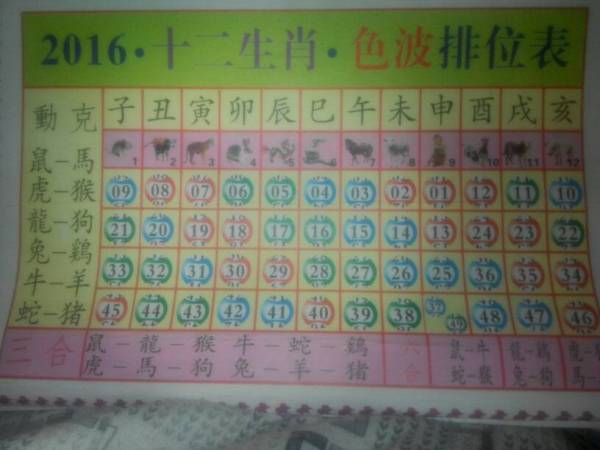 2016·十二生肖·色波排位表
動克 子 丑 寅 卯 辰 巳 午 未 申 酉 戌 亥
1 2 3 4 5 6 7 8 9 10 11 12
鼠-馬
虎-猴 09 08 07 06 05 04 03 02 01 12 11 10
龍-狗 21 20 19 18 17 16 15 14 13 24 23 22
兔-鷄
牛-羊 33 32 31 30 29 28 27 26 25 36 35 34
蛇-猪 45 44 43 42 41 40 39 38 37 49 48 47 46
三合 鼠-龍-猴 牛-蛇-鷄 六合 鼠-牛 龍-鷄
虎-馬-狗 兔-羊-猪 蛇-猴 兔-狗